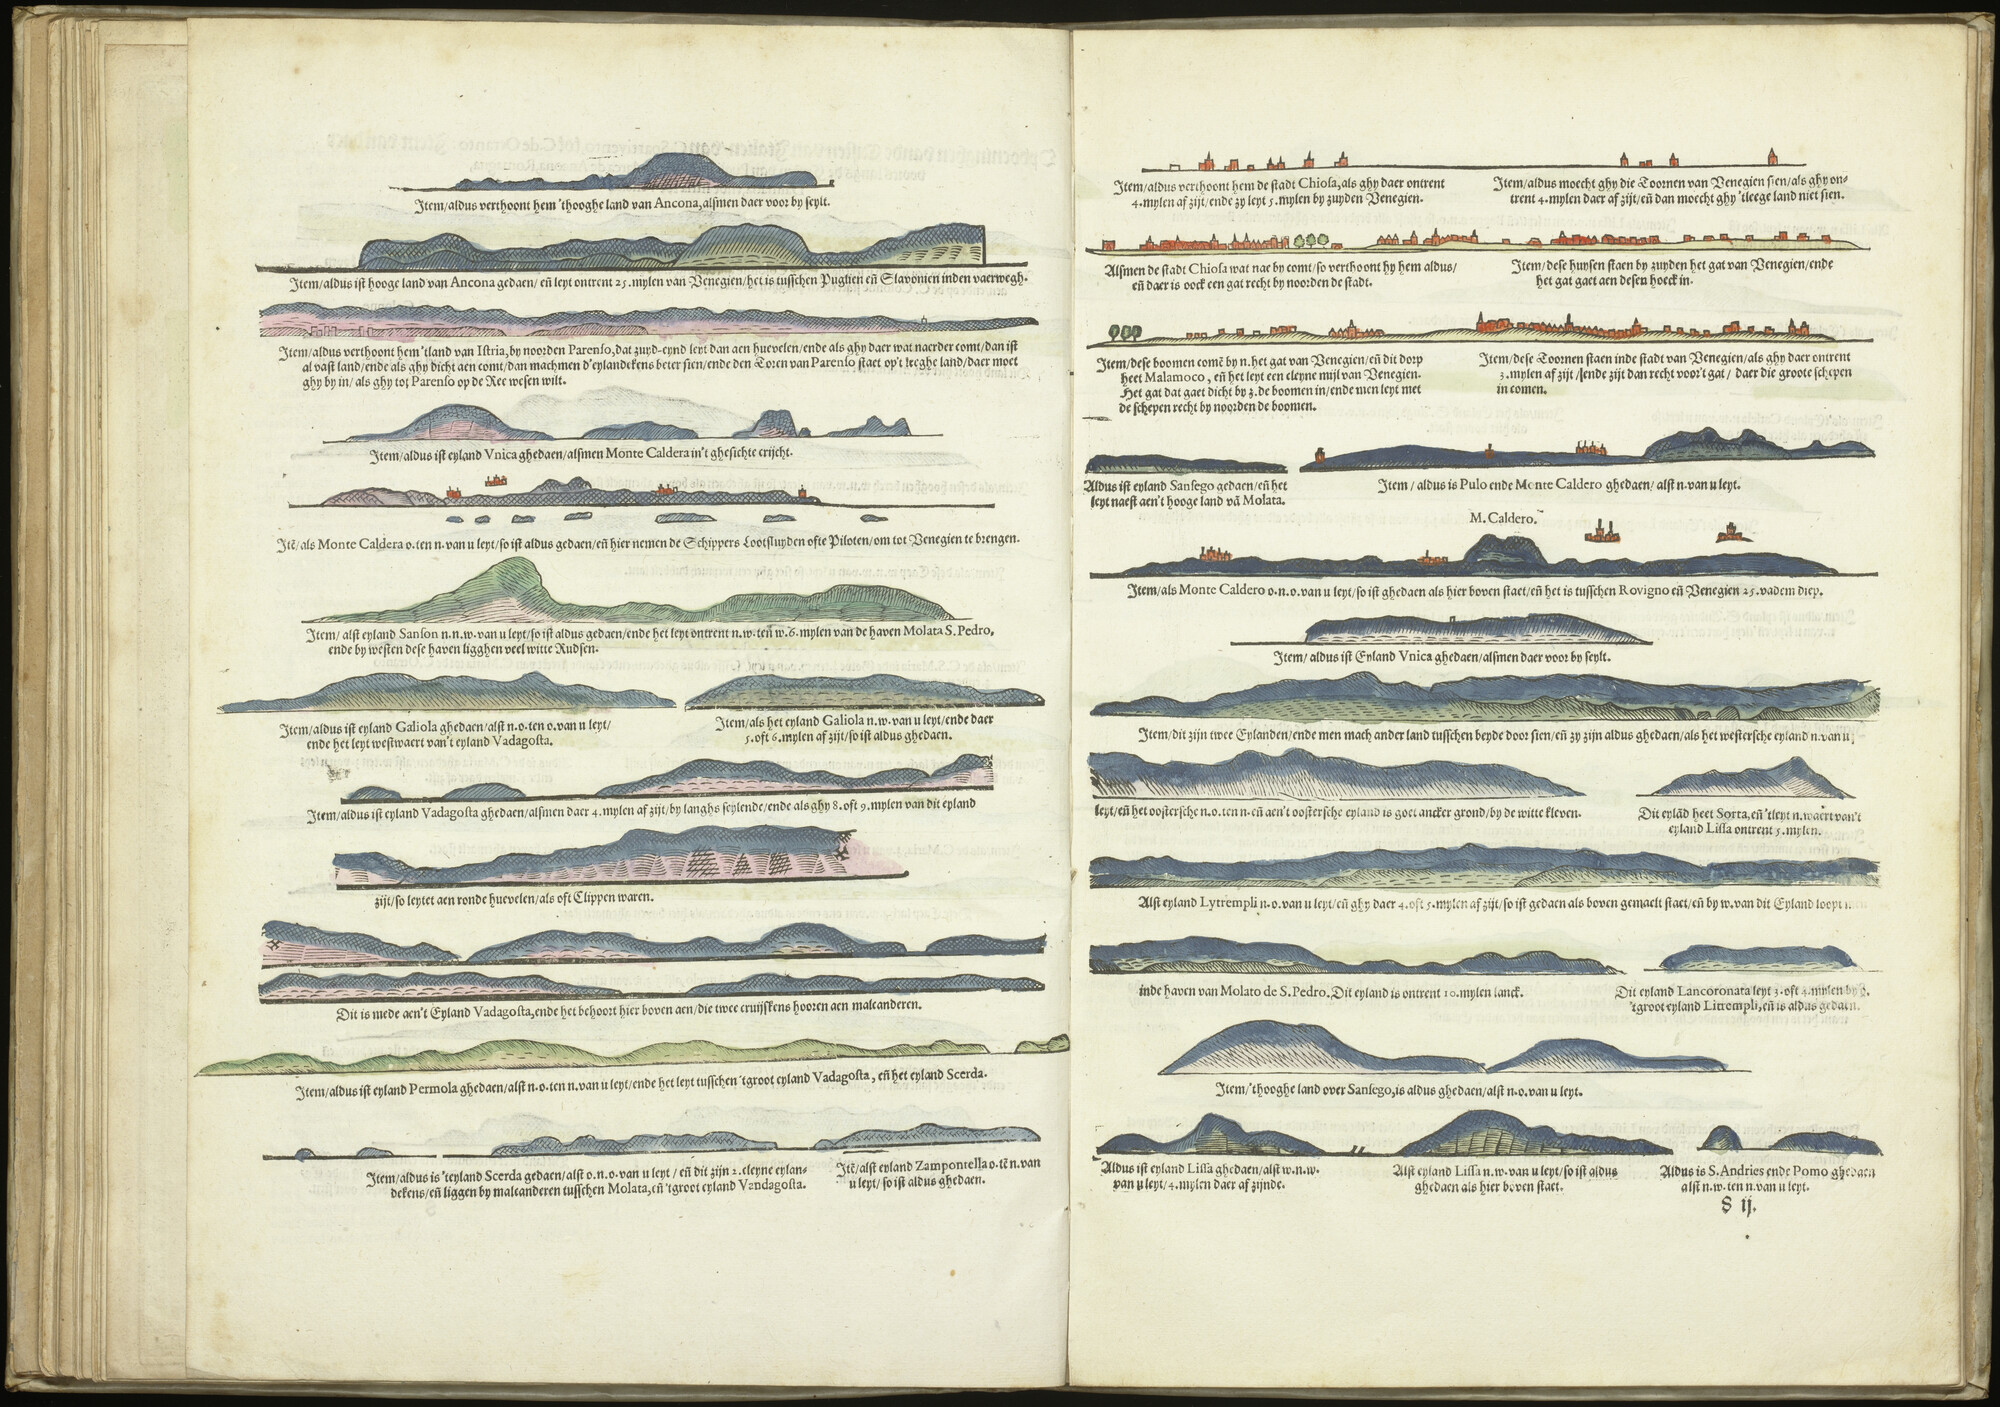 Item/aldus verthoont hem 'thooghe land van Ancona, alsmen daer voor by seylt.
Item/aldus ist hooge land van Ancona gedaen/ en̄ leyt ontrent 25. mylen van Venegien/het is tusschen Puglien en̄ Slavonien inden vaerwegh.
Item/aldus verthoont hem 'tland van Istria, by noorden Parenso, dat zuyd-eynd leyt dan aen huevelen/ende als ghy daer wat naerder comt/dan ist
al vast land/ende als ghy dicht aen comt/dan machmen d'eylandekens beter sien/ende den Toren van Parenso staet op't leeghe land/daer moet
ghy by in/ als ghy tot Parenso op de Ree wesen wilt.
Item/aldus ist eyland Vnica ghedaen/alsmen Monte Caldera in't ghesichte crijcht.
Itē/als Monte Caldera o. ten n. van u leyt/so ist aldus gedaen/en̄ hier nemen de Schippers Lootsluyden ofte Piloten/om tot Venegien te brengen.
Item/ alst eyland Sanson n.n.w. van u leyt/so ist aldus gedaen/ende het leyt ontrent n.w. ten w. 6. mylen van de haven Molata S. Pedro,
ende by westen dese haven ligghen veel witte Rudsen.
Item/aldus ist eyland Galiola ghedaen/alst n.o. ten o. van u leyt/
ende het leyt westwaert van't eyland Vadagosta.
Item/als het eyland Galiola n.w. van u leyt/ende daer
5. oft 6. mylen af zijt/so ist aldus ghedaen.
Item/aldus ist eyland Vadagosta ghedaen/alsmen daer 4. mylen af zijt/by langhs seylende/ende als ghy 8. oft 9. mylen van dit eyland
zijt/so leytet aen ronde huevelen/als oft Clippen waren.
Dit is mede aen't Eyland Vadagosta, ende het behoort hier boven aen/die twee cruijskens hooren aen malcanderen.
Item/aldus ist eyland Permola ghedaen/alst n.o. ten n. van u leyt/ende het leyt tusschen 'tgroot eyland Vadagosta, en̄ het eyland Scerda.
Item/aldus is 'teyland Scerda gedaen/alst o.n.o. van u leyt / en̄ dit zijn 2. cleyne eylan-
dekens/en̄ liggen by malcanderen tusschen Molata, en̄ 'tgroot eyland Vandagosta.
Itē/alst eyland Zampontella o. tē n. van
u leyt/ so ist aldus ghedaen.
Item/aldus verthoont hem de stadt Chiosa, als ghy daer ontrent
4. mylen af zijt/ende zy leyt 5. mylen by zuyden Venegien.
Item/aldus moecht ghy die Toornen van Venegien sien/als ghy on-
trent 4. mylen daer af zijt/en̄ dan moecht ghy 'tleege land niet sien.
Alsmen de stadt Chiosa wat nae by comt/so verthoont hy hem aldus/
en̄ daer is oock een gat recht by noorden de stadt.
Item/dese huysen staen by zuyden het gat van Venegien/ende
het gat gaet aen desen hoeck in.
Item/dese boomen comē by n. het gat van Venegien/en̄ dit dorp
heet Malamoco, en̄ het leyt een cleyne mijl van Venegien.
Het gat dat gaet dicht by z. de boomen in/ende men leyt met
de schepen recht by noorden de boomen.
Item/dese Toornen staen inde stadt van Venegien/als ghy daer ontrent
3. mylen af zijt /ende zijt dan recht voor't gat/ daer die groote schepen
in comen.
Aldus ist eyland Sansego gedaen/en̄ het
leyt naest aen't hooge land vā Molata.
Item / aldus is Pulo ende Monte Caldero ghedaen/ alst n. van u leyt.
M. Caldero.
Item/als Monte Caldero o.n.o. van u leyt/so ist ghedaen als hier boven staet/en̄ het is tusschen Rovigno en̄ Venegien 25. vadem diep.
Item/ aldus ist Eyland Vnica ghedaen/alsmen daer voor by seylt.
Item/dit zijn twee Eylanden/ende men mach ander land tusschen beyde door sien/en̄ zy zijn aldus ghedaen/als het westersche eyland n. van u
leyt/en̄ het oostersche n.o. ten n. en̄ aen't oostersche eyland is goet ancker grond/by de witte kleven.
Dit eylād heet Sorta, en̄ 'tleyt n. waert van't
eyland Lissa ontrent 5. mylen.
Alst eyland Lytrempli n.o. van u leyt/en̄ ghy daer 4. oft 5. mylen af zijt/so ist gedaen als boven gemaelt staet/en̄ by w. van dit Eyland loopt
inde haven van Molato de S. Pedro. Dit eyland is ontrent 10. mylen lanck.
Dit eyland Lancoronata leyt 3. oft 4. mylen by
'tgroot eyland Litrempli, en̄ is aldus gedaen.
Item/'thooghe land over Sansego, is aldus ghedaen/alst n.o. van u leyt.
Aldus ist eyland Lissa ghedaen/alst w.n.w.
van u leyt/4. mylen daer af zijnde.
Alst eyland Lissa n.w. van u leyt/so ist aldus
ghedaen als hier boven staet.
Aldus is S. Andries ende Pomo ghedaen
alst n.w. ten n. van u leyt.
S ij.